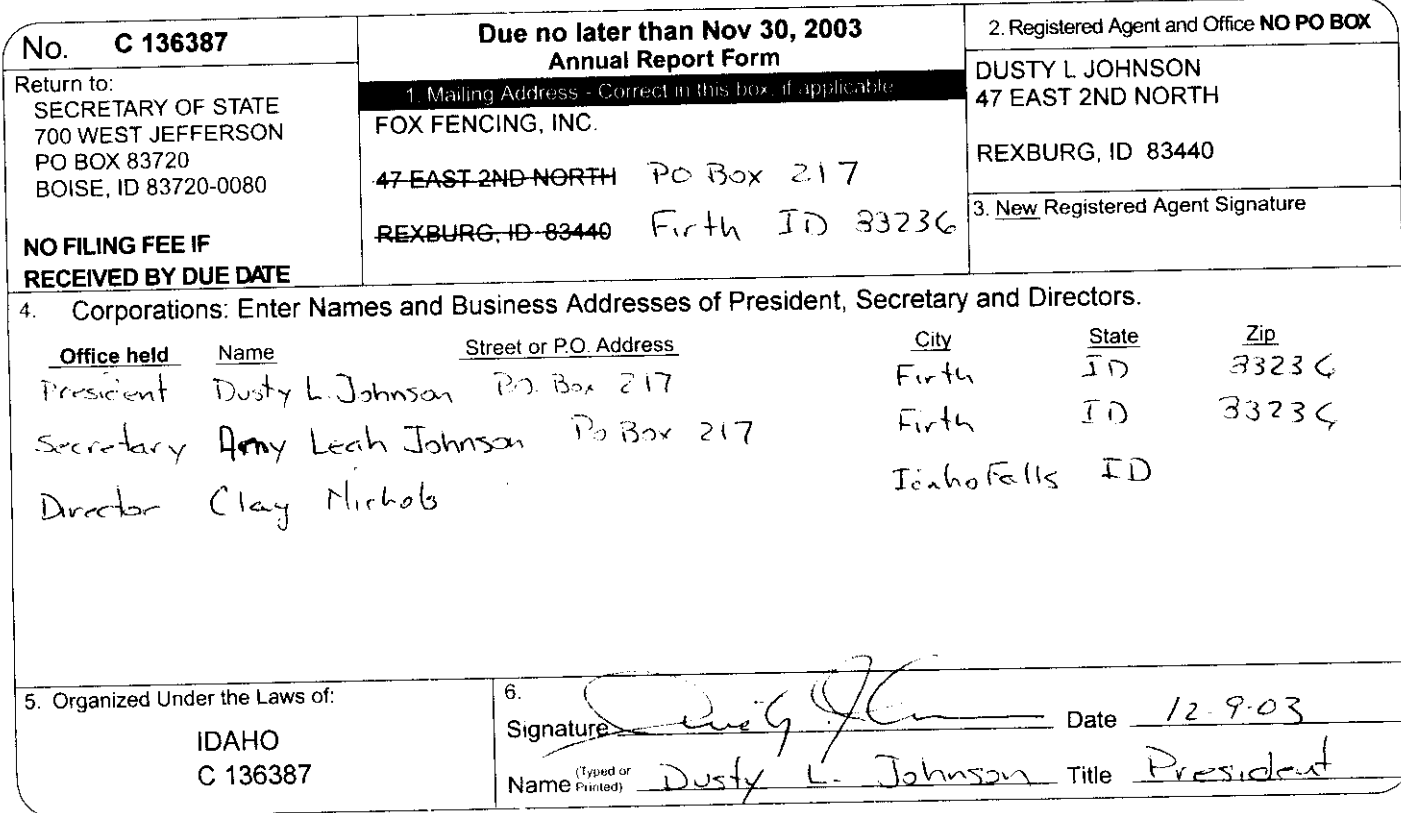 No. C 136387
Return to:
SECRETARY OF STATE
700 WEST JEFFERSON
PO BOX 83720
BOISE, ID 83720-0080
NO FILING FEE IF
RECEIVED BY DUE DATE
Due no later than Nov 30, 2003
Annual Report Form
1. Mailing Address - Correct in this box, if applicable
FOX FENCING, INC.
47 EAST 2ND NORTH PO Box 217
REXBURG, ID 83440 Firth ID 83236
2. Registered Agent and Office NO PO BOX
DUSTY L JOHNSON
47 EAST 2ND NORTH
REXBURG, ID 83440
3. New Registered Agent Signature
4. Corporations: Enter Names and Business Addresses of President, Secretary and Directors.
Office held Name Street or P.O. Address City State Zip
President Dusty L. Johnson P.O. Box 217 Firth ID 83236
Secretary Amy Leah Johnson Po Box 217 Firth ID 83236
Director Clay Nichols Idaho Falls ID
5. Organized Under the Laws of:
IDAHO
C 136387
6.
Signature Date 12-9-03
Name (Typed or Printed) Dusty L. Johnson Title President